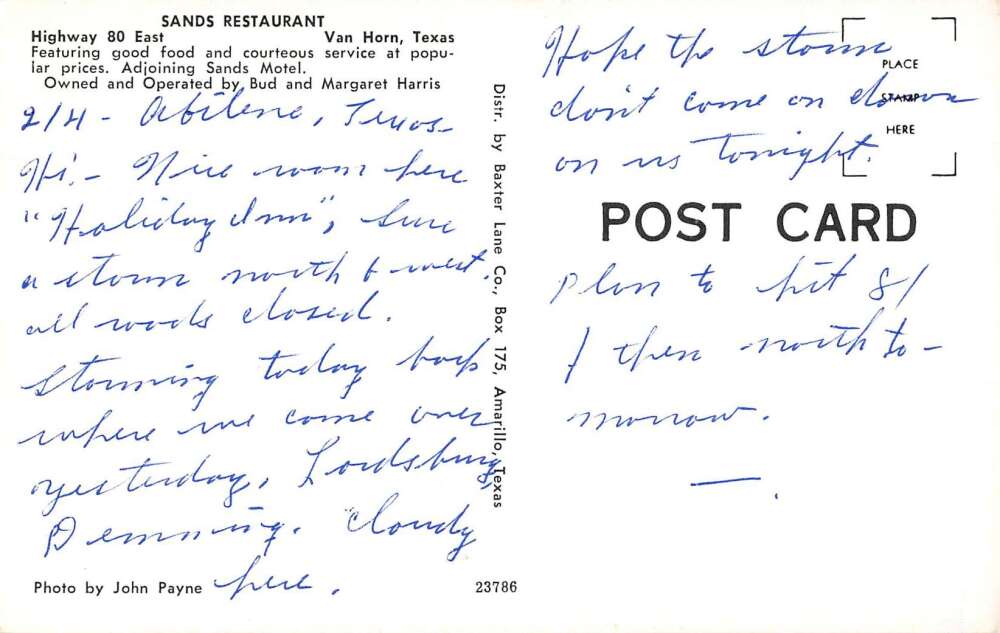 SANDS RESTAURANT
Highway 80 East Van Horn, Texas
Featuring good food and courteous service at popu-
lar prices. Adjoining Sands Motel.
Owned and Operated by Bud and Margaret Harris
2/4 - Abilene, Texas-
Hi.- Nice room here
"Holiday Inn", Sure
a storm north & west.
all roads closed.
Storming today back
where we come over
yesterday, Lordsburg,
Demming. Cloudy
here.
Photo by John Payne
23786
Distr. by Baxter Lane Co., Box 175, Amarillo, Texas
PLACE
STAMP
HERE
Hope the storm
don't come on down
on us tonight.
POST CARD
Plan to hit 81
& then north to-
morrow.